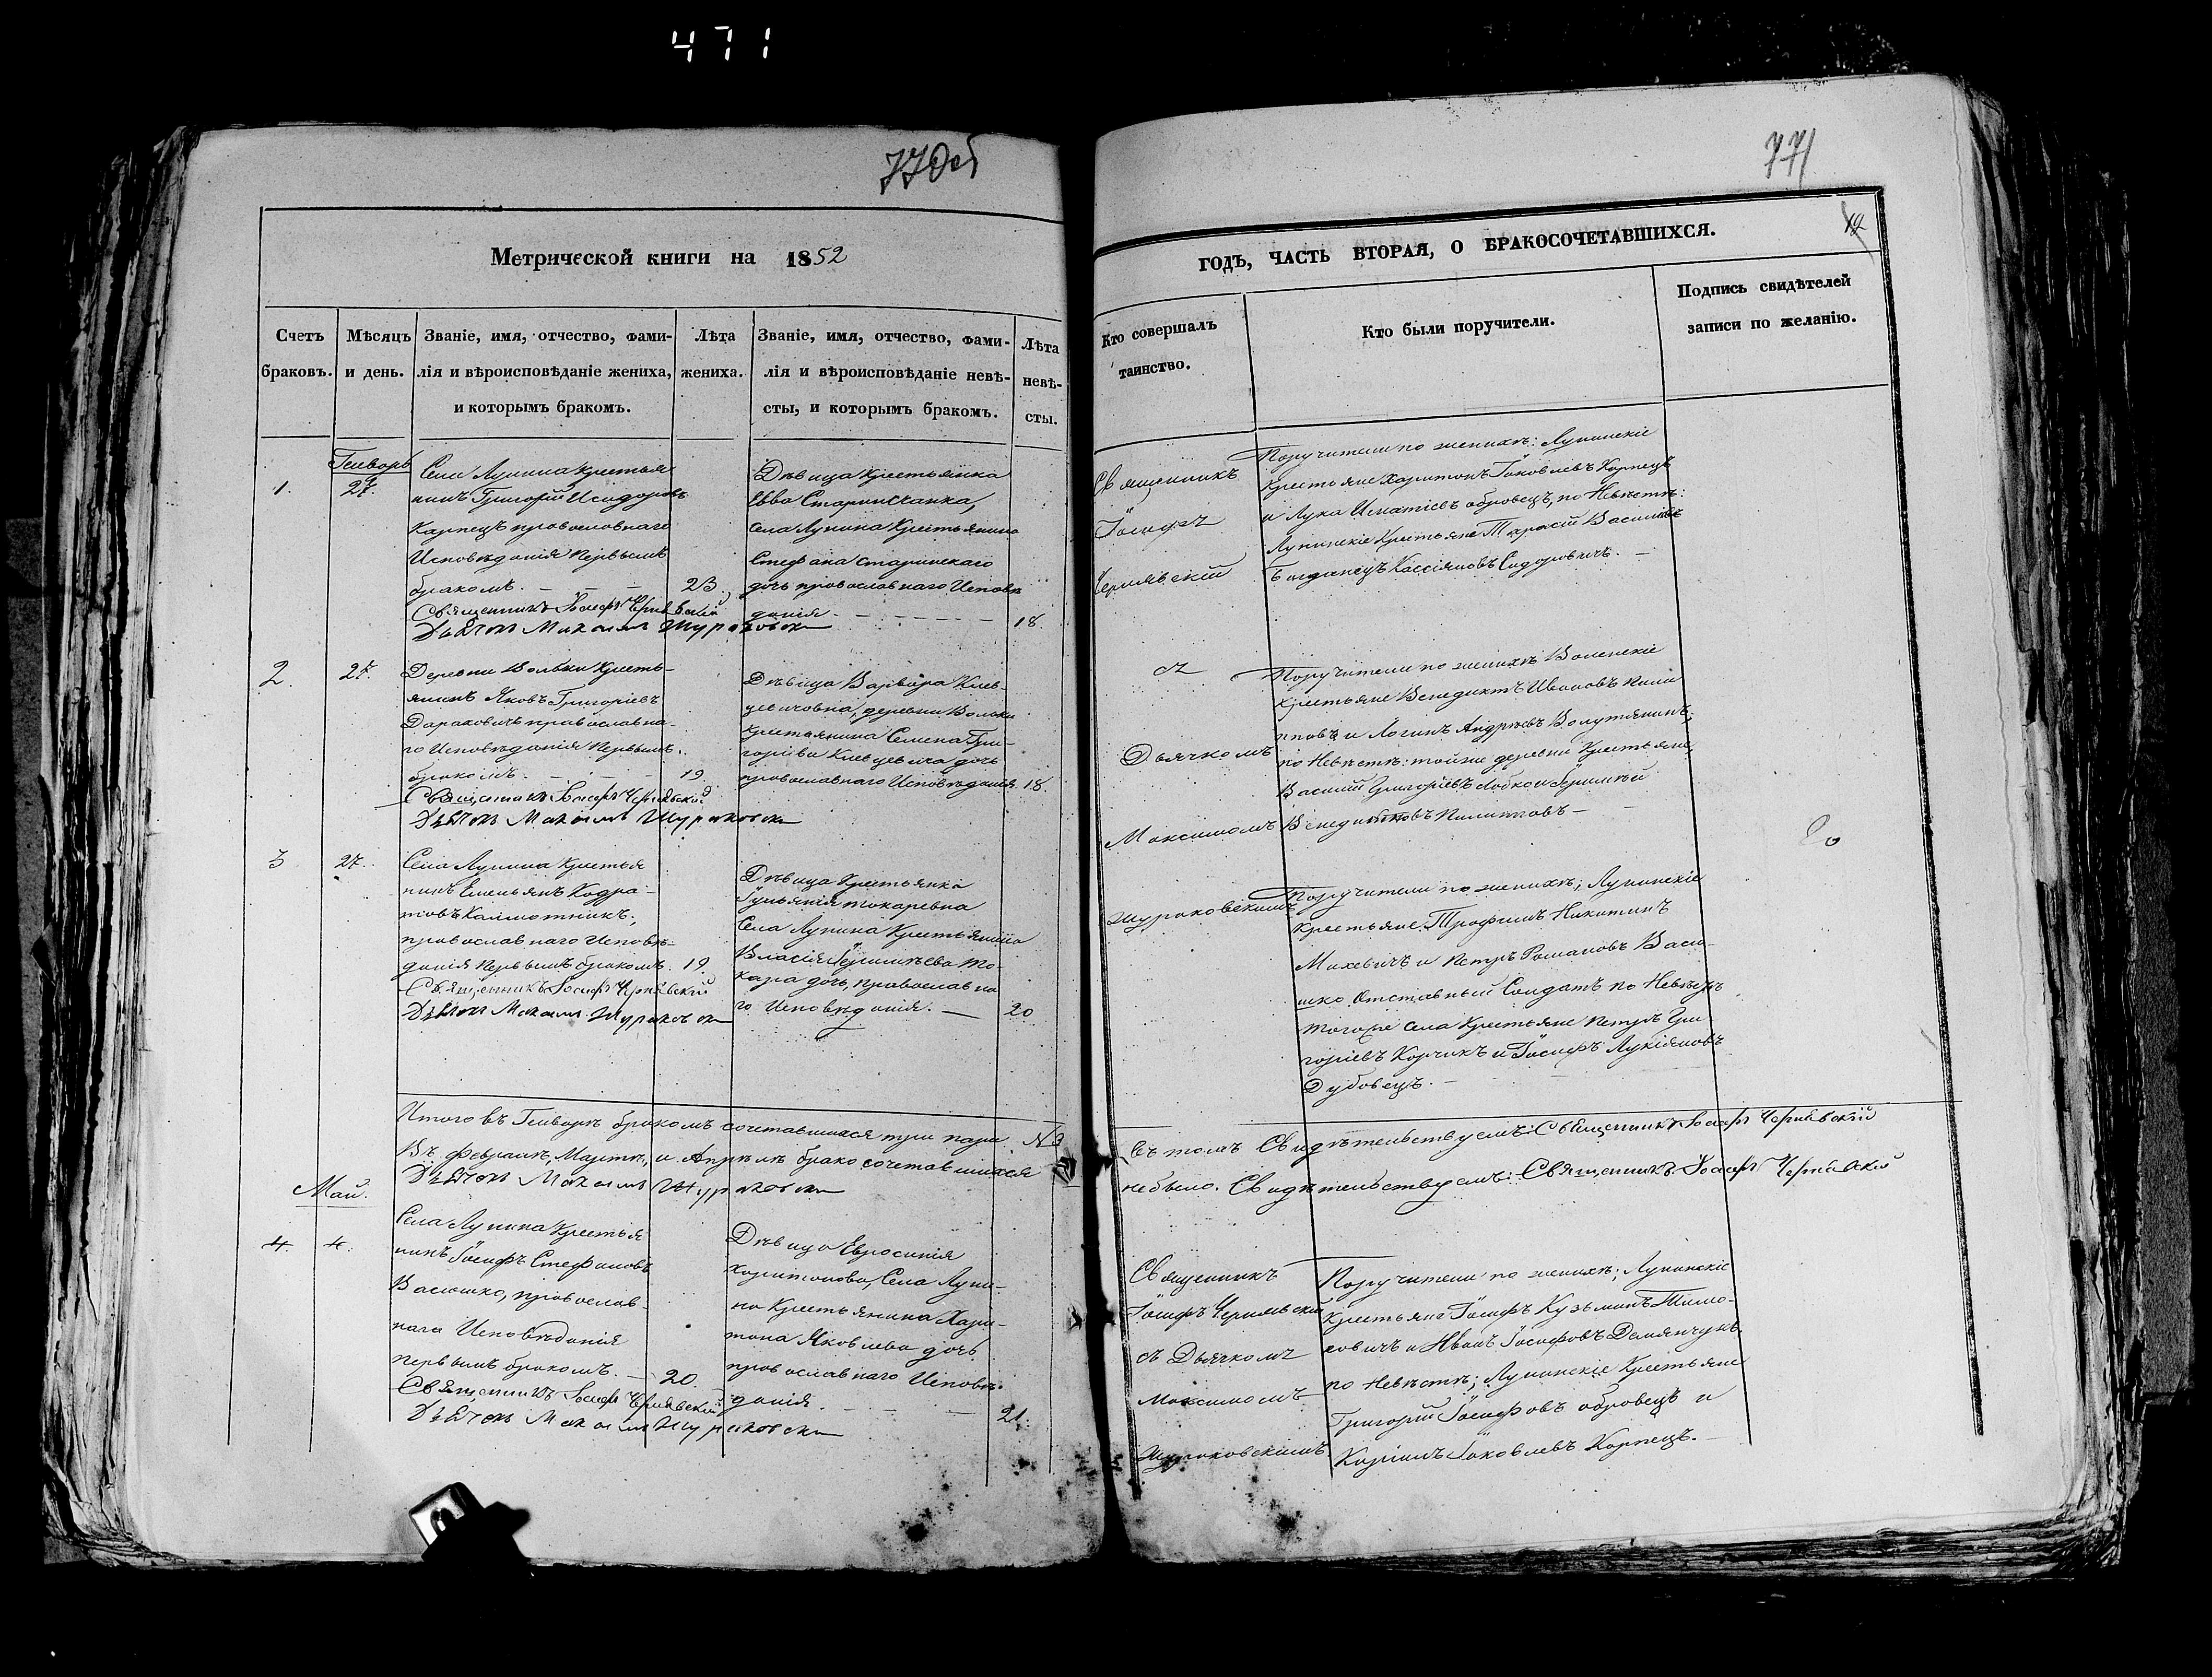 471
770об
771
Метрической книги на 1852
годъ, часть вторая, о бракосочетавшихся.
12
Счетъ
браковъ.
Мѣсяцъ
и день.
Званіе, имя, отчество, фами-
лія и вѣроисповѣданіе жениха,
и которымъ бракомъ.
Лѣта
жениха.
Званіе, имя, отчество, фами-
лія и вѣроисповѣданіе невѣ-
сты, и которымъ бракомъ.
Лѣта
невѣ-
сты.
Кто совершалъ
таинство.
Кто были поручители.
Подпись свидѣтелей
записи по желанію.
Генварь
1.
27.
Села Лунина крестья
нинъ Григорій Исидоровъ
Карпецъ православнаго
Исповѣданія первымъ
бракомъ.
23.
Священникъ Іосифъ Чернявскій
Дьячокъ Максимъ Жураковски
Дѣвица крестьянка
Евва Старинсканка,
села Лунина Крестьянина
Стефана старинскаго
дочь православнаго Исповѣ
данія
18.
Священникъ
Іосифъ
Чернявскій
Поручители по женихѣ: Лунинскіе
крестьяне Харитонъ Іаковлевъ Карпецъ
и Лука Игнатіевъ обровецъ, по Невѣстѣ:
Лунинскіе Крестьяне Тарасій Васильевъ
Богданецъ Кассіяновъ Сидоровичъ.
2.
27.
Деревни Вольки Кресть-
янинъ Яковъ Григоріевъ
Дараховичъ православна-
го Исповѣданія Первымъ
бракомъ.
19
Священникъ Іосифъ Чернявский
Дьячокъ Максимъ Жураковски
Дѣвица Варвара Киев-
цевичовна, деревни Вольки
крестьянина Семена Гри-
горіева Киевцевича дочь
православнаго Исповѣданія
18.
съ
Дьячкомъ
Максимомъ
Жураковскимъ
Поручители по женихѣ Воленскіе
крестьяне Венедиктъ Ивановъ Пили
пповъ и Логинъ Андреевъ Волутянинъ;
по Невѣстѣ: тойже деревни Крестьяне,
Василій Григоріевъ Лобко и Еремѣй
Венедиктовъ Пилипповъ
3
27.
Села Лунина Крестья
нинъ Емельянъ Кодра-
товъ
православнаго Исповѣ-
данія Первымъ бракомъ.
19.
Священникъ Іосифъ Чернявский
Дьячокъ Максимъ Жураковски
Дѣвица Крестьянка
Іуліянія токаревна
Села Лунина Крестьянина
Власія Еремѣева То-
каря дочь, православна
го Исповѣданія.
20
Поручители по женихѣ; Лунинскіе
Крестьяне Трофимъ Никитинъ
Михевичъ и Петръ Романовъ Васи-
шко Отставный Солдатъ по Невѣстѣ
тогоже села Крестьяне Петръ Гри
горіевъ Корчикъ и Іосифъ Лукіяновъ
Дубовецъ.
Итого въ Генварѣ бракомъ сочетавшихся три пары №3
Въ Февралѣ, Мартѣ, и Апрѣлѣ бракосочетавшихся
Дьячокъ Максимъ Жураковски
въ томъ Свидѣтельствуемъ: Священникъ Іосифъ Чернявский
небыло. Свидѣтельствуемъ: Священникъ Іосифъ Чернявский
Май.
4.
4.
Села Лунина Крестья
нинъ Іосифъ Стефановъ
Васюшко, православ-
наго Исповѣданія
первымъ бракомъ.
20.
Священникъ Іосифъ Чернявский
Дьячокъ Максимъ Жураковски
Дѣвица Евросинія
Харитонова, Села Луни-
на Крестьянина Хари-
тона Яковлева дочь
православнаго Исповѣ-
данія.
21.
Священникъ
Іосифъ Чернявскій
съ Дьячкомъ
Максимомъ
Жураковскимъ
Поручители по женихѣ; Лунинскіе
Крестьяне Іосифъ Кузьминъ Тимо-
еовичъ и Иванъ Іосифовъ Демянчукъ
по Невѣстѣ; Лунинскіе Крестьяне
Григорій Іосифовъ обровецъ и
Іаковлевъ Карпецъ.